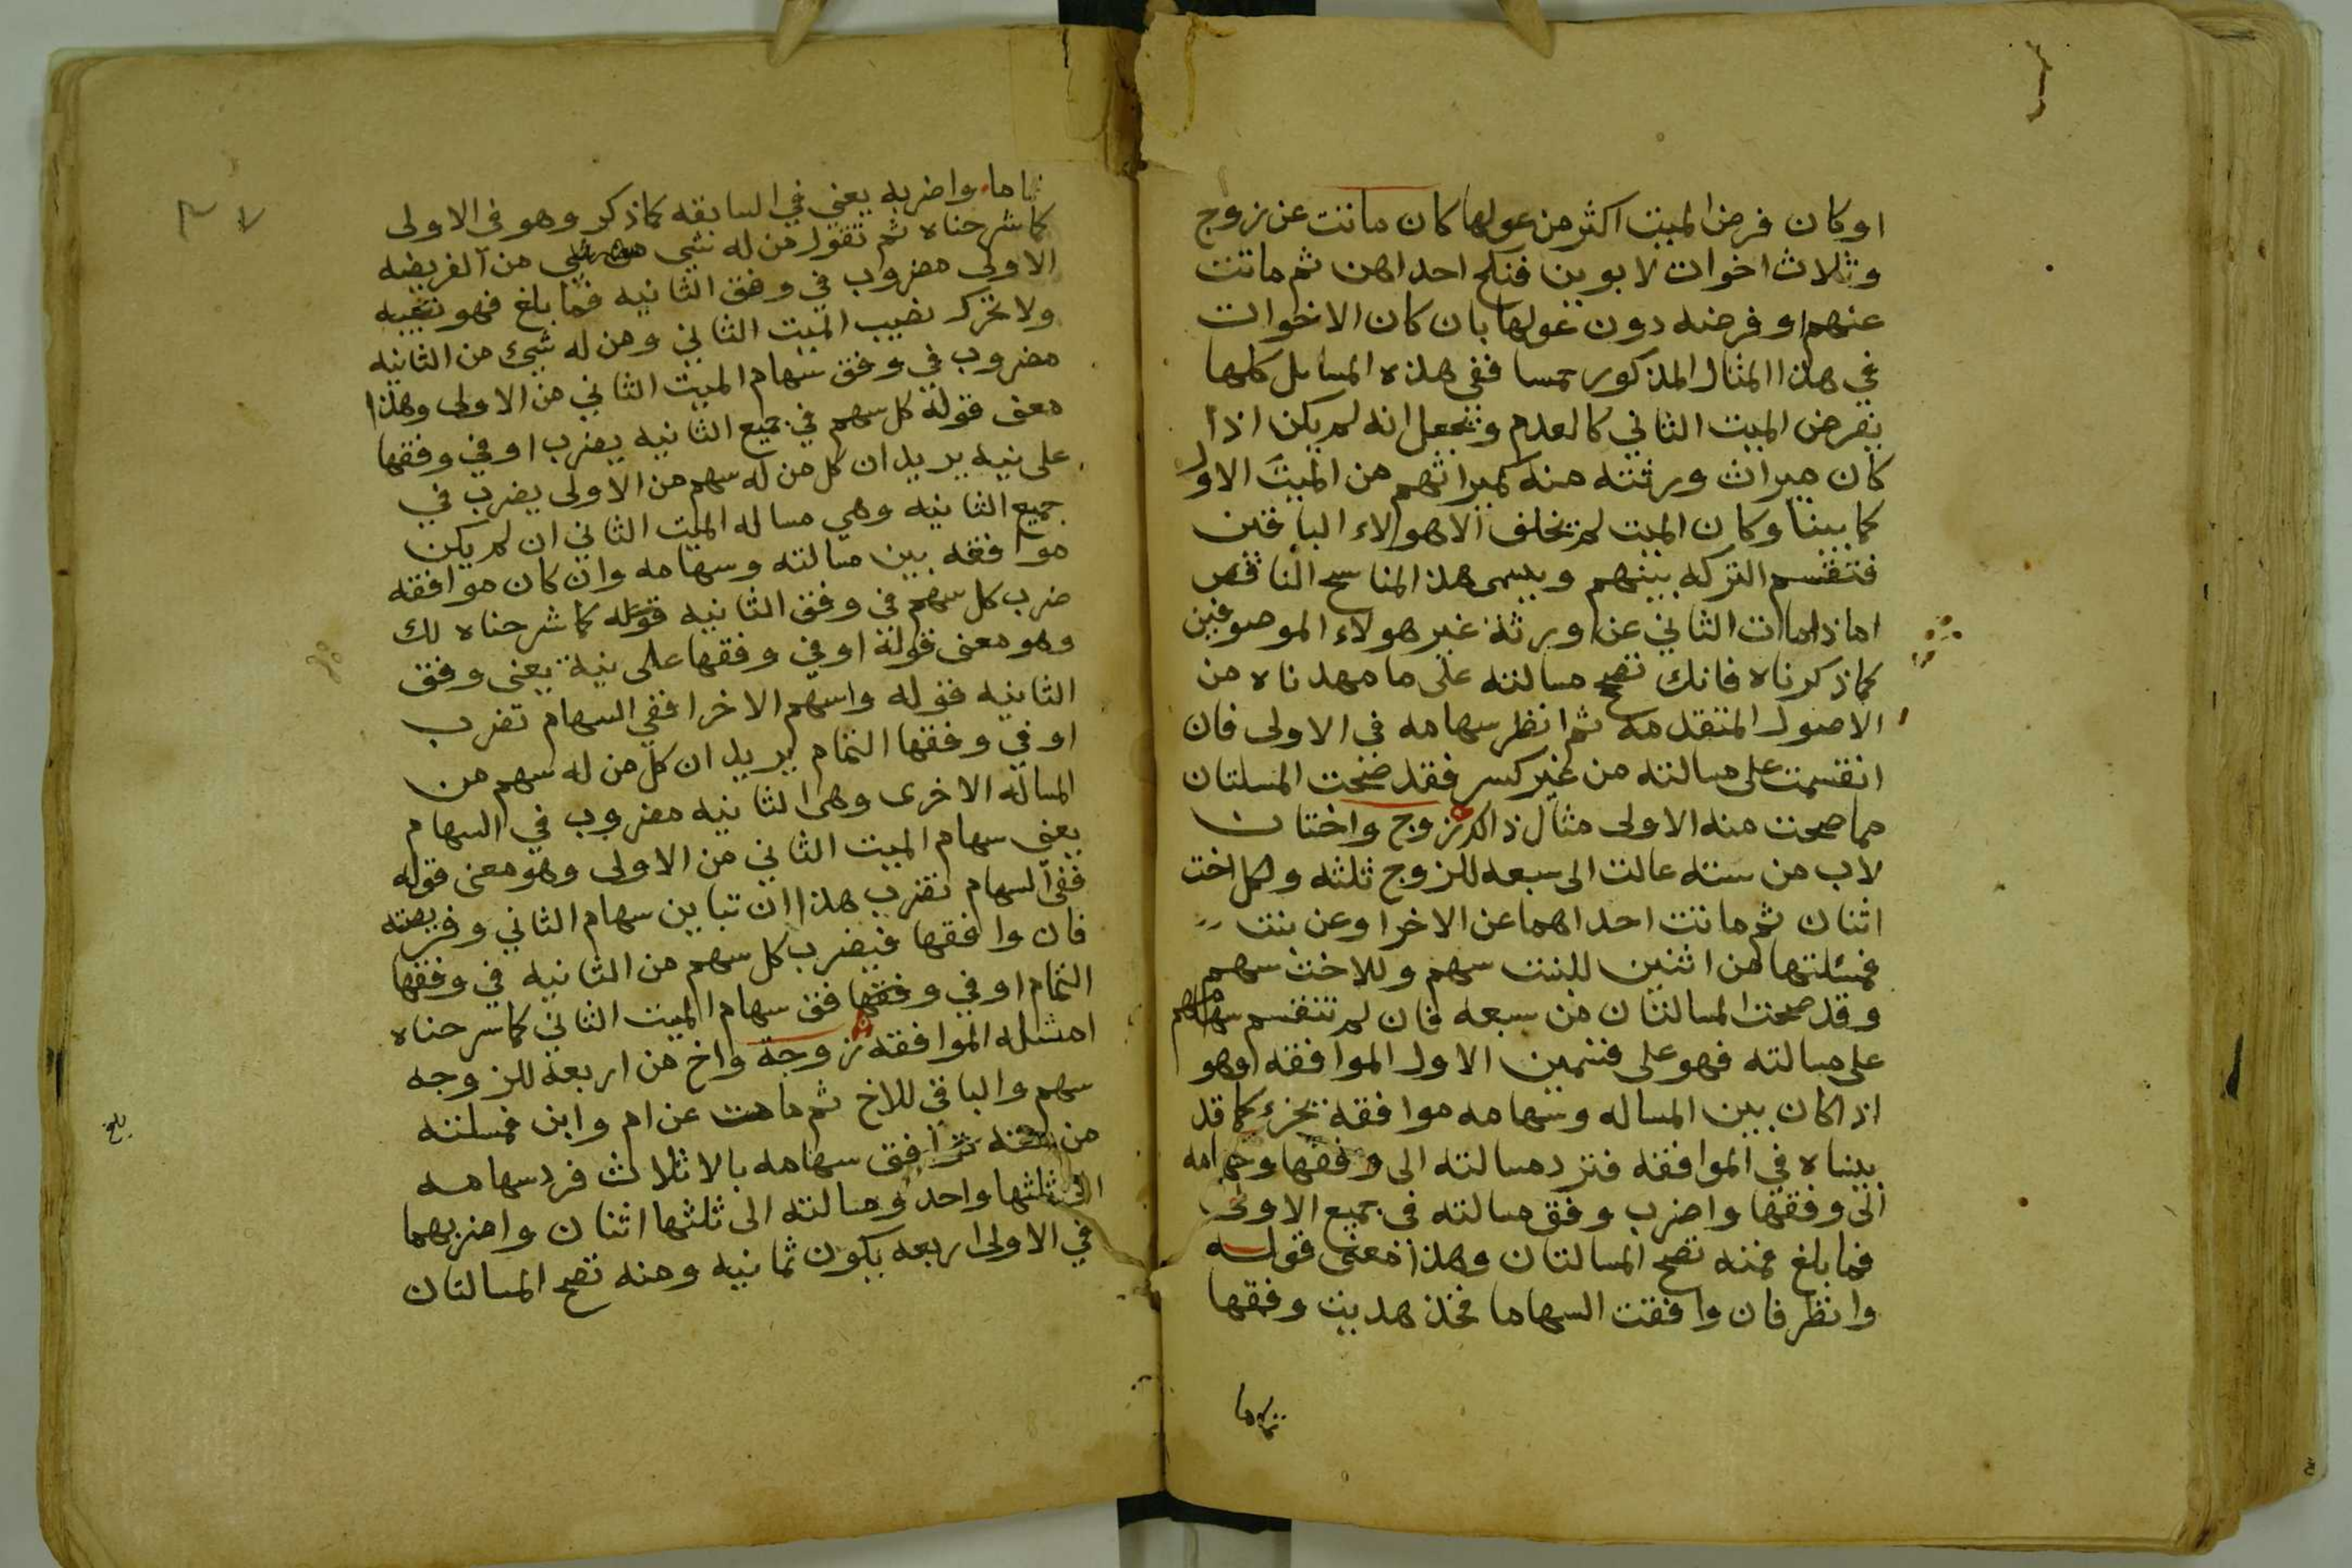 او كان فرض الميت اكثر من عولها كان ماتت عن زوج
وثلاث اخوات لابوين فنكح احداهن ثم ماتت
عنهم او فرضه دون عولها بان كان الاخوات
في هذا المثال المذكور خمسا ففي هذه المسايل كلها
يفرض الميت الثاني كالعدم ونجعل انه لم يكن اذا
كان ميراث ورثته منه كميراثهم من الميت الاول
كما بينا وكان الميت لم يخلف الا هولاء الباقين
فتقسم التركه بينهم ويسمى هذا المناسح الناقص
اما اذا مات الثاني عن ورثة غير هولاء الموصوفين
كما ذكرناه فانك تصحح مسالته على ما مهدناه من
الاصول المتقدمه ثم انظر سهامه في الاولى فان
انقسمت على مسالته من غير كسر فقد صحت المسلتان
مما صحت منه الاولى مثال ذالك زوج واختان
لاب من سته عالت الى سبعه للزوج ثلثه ولكل اخت
اثنان ثم ماتت احداهما عن الاخرا وعن بنت
فمسئلتها من اثنين للبنت سهم وللاخت سهم
وقد صحت المسالتان من سبعه فان لم تنقسم سهامهم
على مسالته فهو على قسمين الاول الموافقه وهو
اذا كان بين المساله وسهامه موافقه بجزء كما قد
بيناه في الموافقه فترد مسالته الى وفقها وسهامه
الى وفقها واضرب وفق مسالته في جميع الاولى
فما بلغ فمنه تصح المسالتان وهذا معنى قوله
وانظر فان وافقت السهاما فخذ هديت وفقها
تماما
تاما واضربه يعني في السابقه كما ذكر وهو في الاولى
كما شرحناه ثم تقول من له شي من الفريضه
الاولى مضروب في وفق الثانيه فما بلغ فهو نصيبه
ولا تترك نصيب الميت الثاني ومن له شيئ من الثانيه
مضروب في وفق سهام الميت الثاني من الاولى وهذا
معنى قوله كل سهم في جميع الثانيه يضرب او في وفقها
على نيه يريد ان كل من له سهم من الاولى يضرب في
جميع الثانيه وهي مساله الميت الثاني ان لم يكن
موافقه بين مسالته وسهامه وان كان موافقه
ضرب كل سهم في وفق الثانيه قوله كما شرحناه لك
وهو معنى قوله او في وفقها على نية يعنى وفق
الثانيه فقوله واسهم الاخرا ففي السهام تضرب
او في وفقها التمام يريد ان كل من له سهم من
المساله الاخرى وهى الثانيه مضروب في السهام
يعني سهام الميت الثاني من الاولى وهو معنى قوله
ففي السهام تضرب هذا ان تباين سهام الثاني وفريضته
فان وافقها فيضرب كل سهم من الثانيه في وفقها
التمام او في وفقها فق سهام الميت الثاني كما شرحناه
امثله الموافقه زوجة واخ من اربعة للزوجه
سهم والباقي للاخ ثم مات عن ام وابن فمسلته
من سته توافق سهامه بالاثلاث فرد سهامه
الى ثلثها واحد ومسالته الى ثلثها اثنان واضربهما
في الاولى اربعه يكون ثمانيه ومنه تصح المسالتان
بلغ